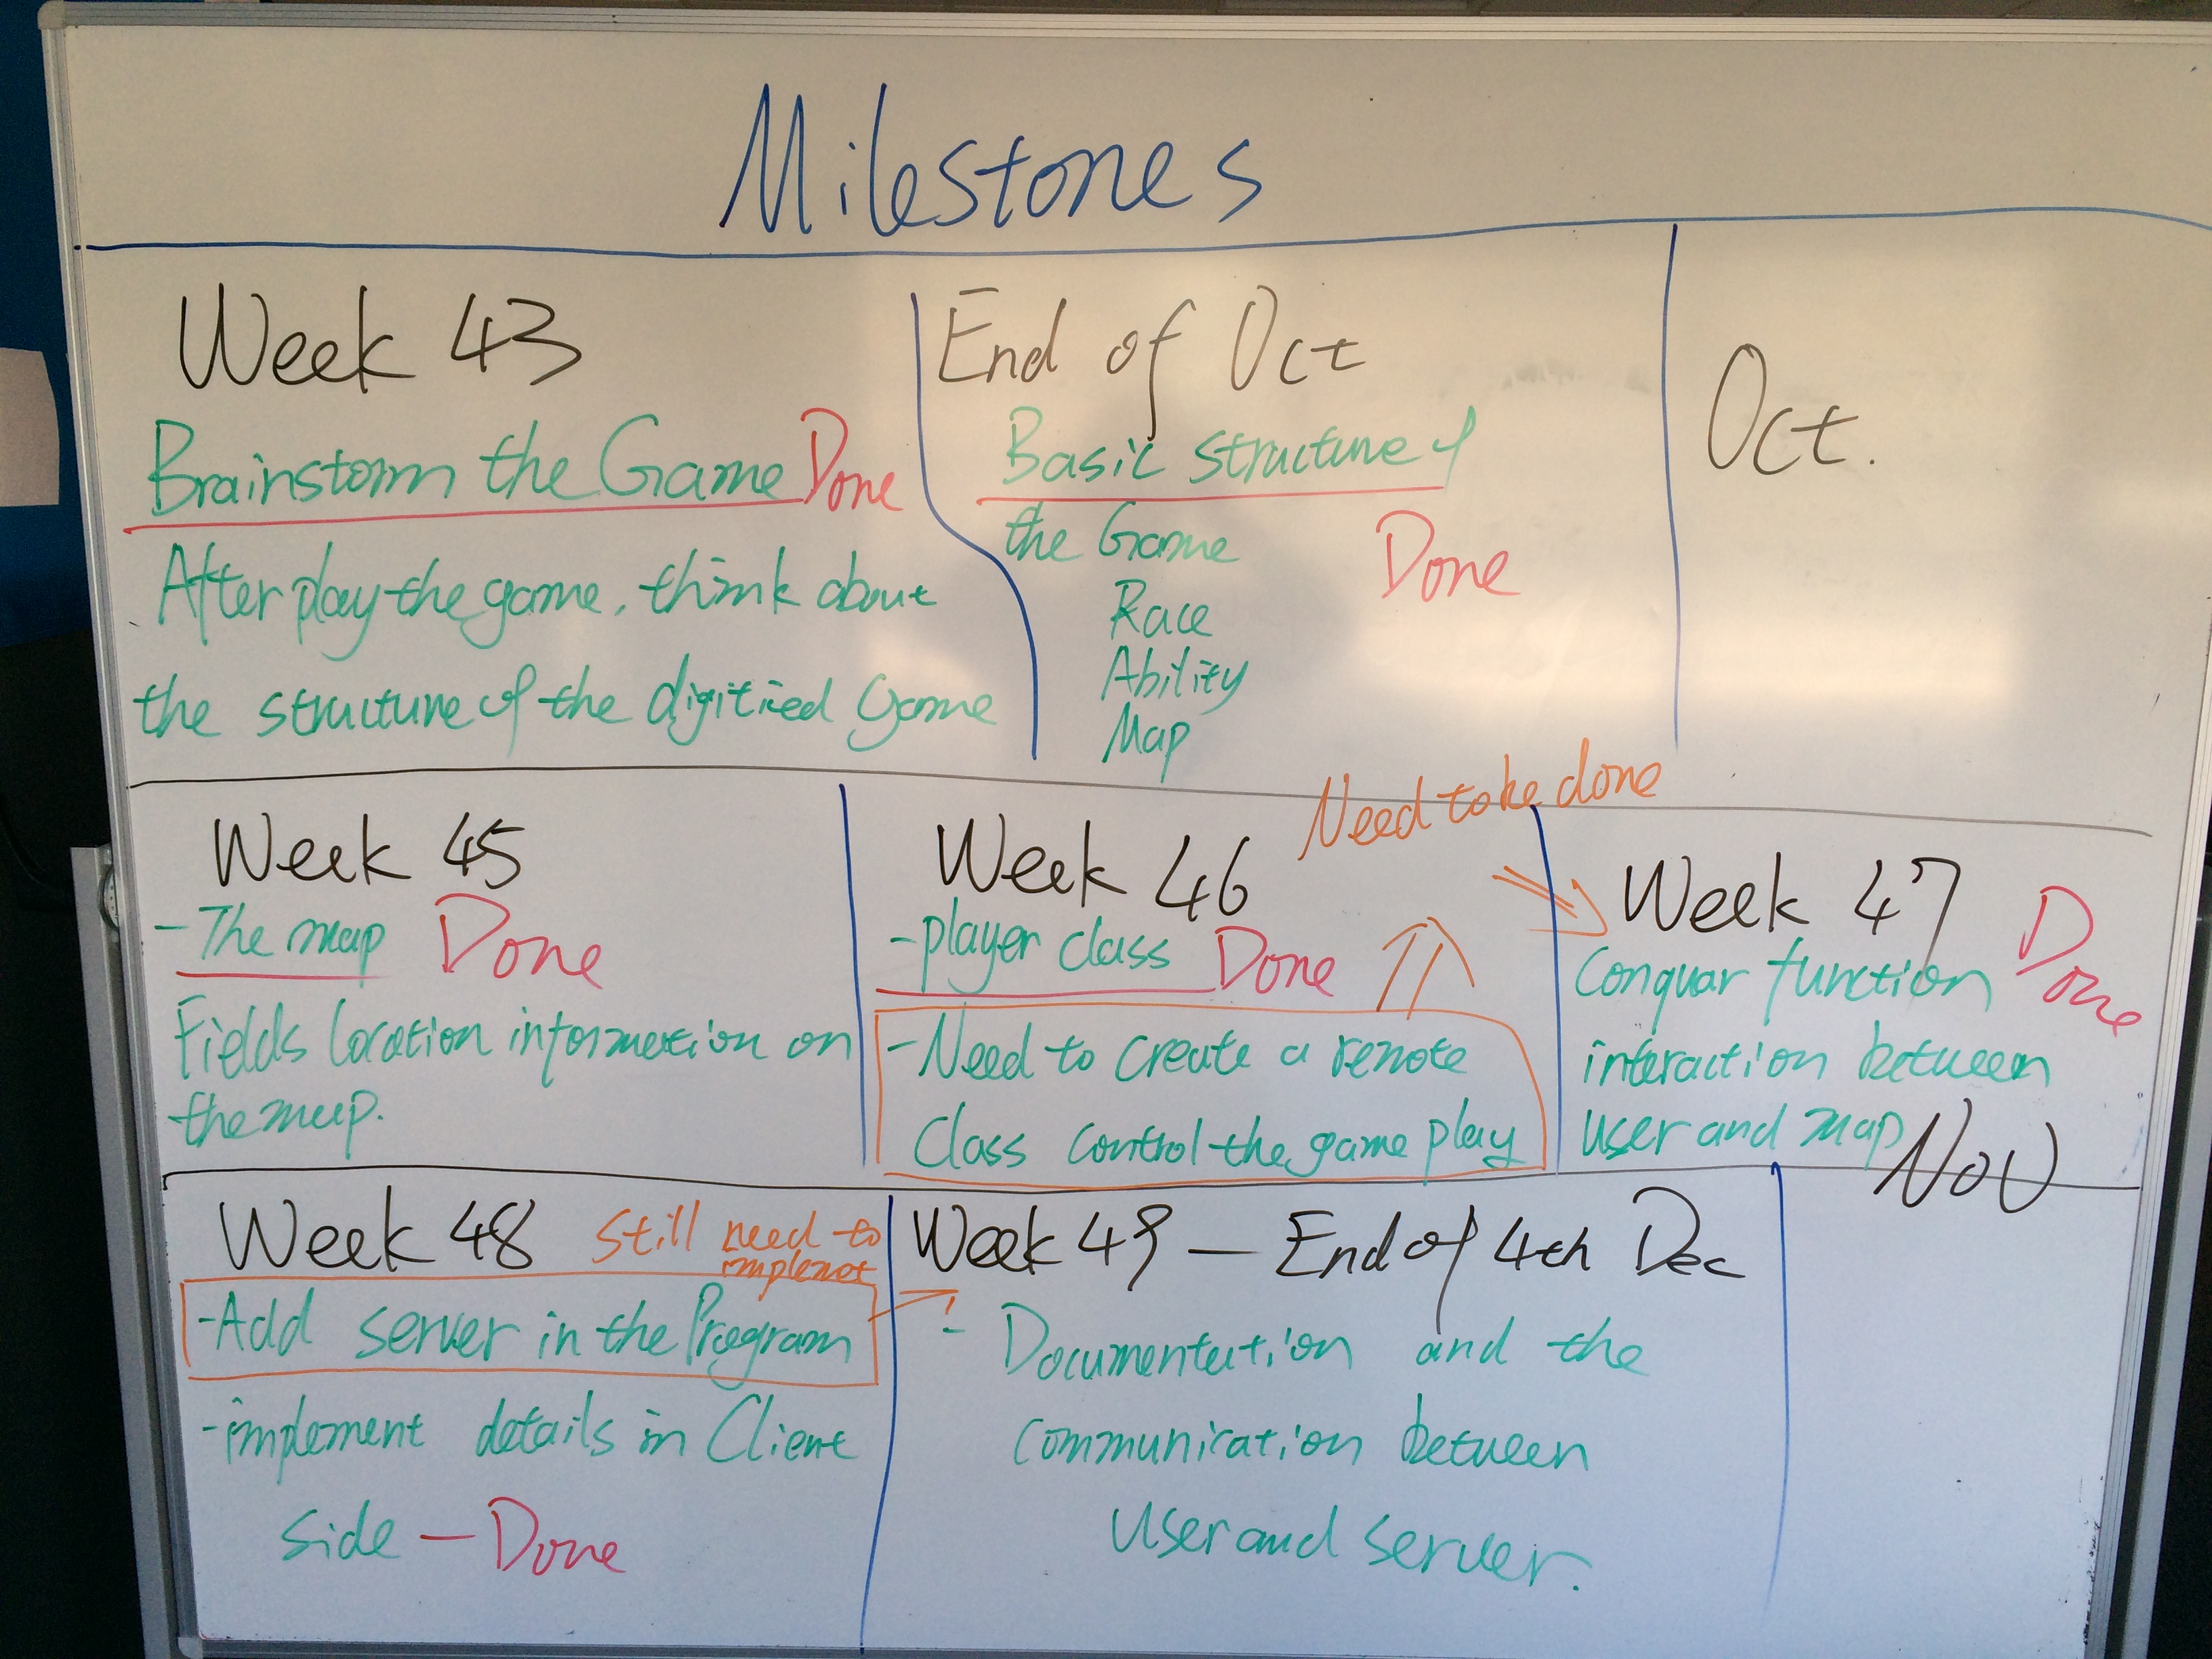 Milestones
Week 43
Brainstorm the Game Done
After play the game, think about
the structure of the digitized Game
End of Oct
Basic structure of
the Game
Done
Race
Ability
Map
Oct.
Week 45
- The map Done
Fields location information on
the map.
Week 46
Need to be done
- player class Done
- Need to create a remote
Class control the game play
Week 47
Done
Conquar function
interaction between
user and map
Nov
Week 48 Still need to
- Add server in the Program
- implement details in Client
side - Done
Week 49 - End of 4th Dec
- Documentation and the
communication between
User and server.